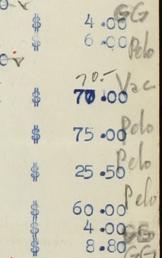 $ 4.00 GG
$ 6.00 Pelo
70.-
$ 70.00 Vac
$ 75.00 Pelo
$ 25.50 Pelo
$ 60.00 Pelo
$ 4.00 GG
$ 8.80 GG